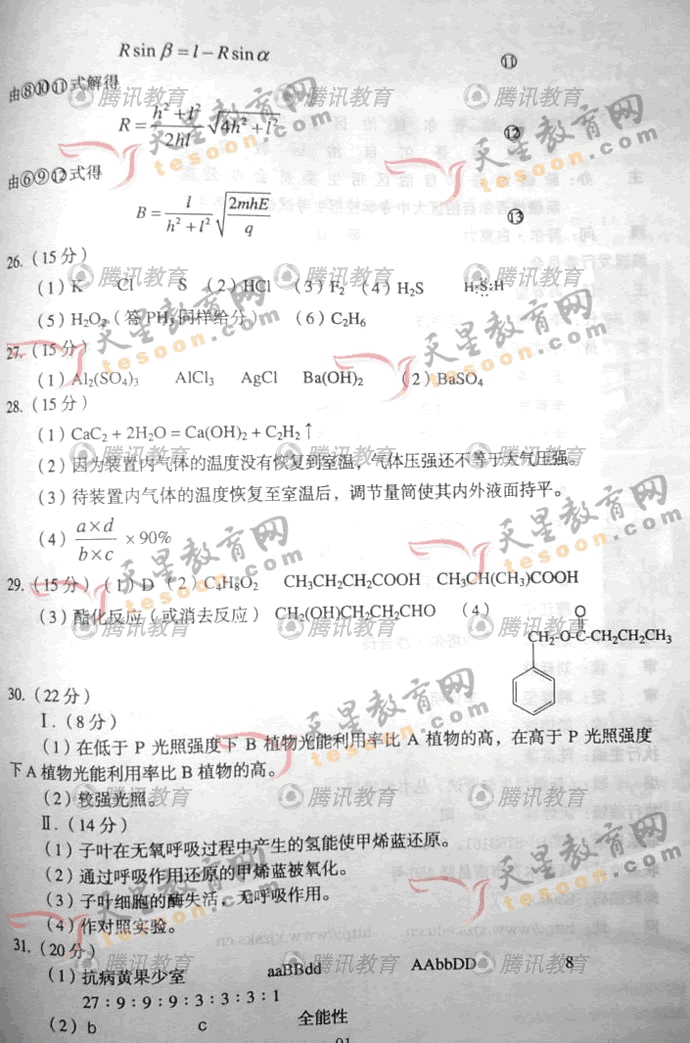 R sin β = l − R sin α ⑪
由⑧⑩⑪式解得
R = (h² + l²)/(2hl) √(4h² + l²) ⑫
由⑥⑨⑫式得
B = l/(h² + l²) √(2mhE/q) ⑬
26.(15分)
(1) K Cl S (2) HCl (3) F₂ (4) H₂S H:S:H
(5) H₂O₂(答PH₃同样给分) (6) C₂H₆
27.(15分)
(1) Al₂(SO₄)₃ AlCl₃ AgCl Ba(OH)₂ (2) BaSO₄
28.(15分)
(1) CaC₂ + 2H₂O = Ca(OH)₂ + C₂H₂↑
(2) 因为装置内气体的温度没有恢复到室温,气体压强还不等于大气压强。
(3) 待装置内气体的温度恢复至室温后,调节量筒使其内外液面持平。
(4) (a×d)/(b×c) ×90%
29.(15分)(1) D (2) C₄H₈O₂ CH₃CH₂CH₂COOH CH₃CH(CH₃)COOH
(3) 酯化反应(或消去反应) CH₂(OH)CH₂CH₂CHO (4)
O
CH₂-O-C-CH₂CH₂CH₃
30.(22分)
Ⅰ.(8分)
(1) 在低于 P 光照强度下 B 植物光能利用率比 A 植物的高,在高于 P 光照强度
下A植物光能利用率比B植物的高。
(2) 较强光照。
Ⅱ.(14分)
(1) 子叶在无氧呼吸过程中产生的氢能使甲烯蓝还原。
(2) 通过呼吸作用还原的甲烯蓝被氧化。
(3) 子叶细胞的酶失活,无呼吸作用。
(4) 作对照实验。
31.(20分)
(1) 抗病黄果少室 aaBBdd AAbbDD 8
27:9:9:9:3:3:3:1
(2) b c 全能性
91
天星教育网
tesoon.com
腾讯教育